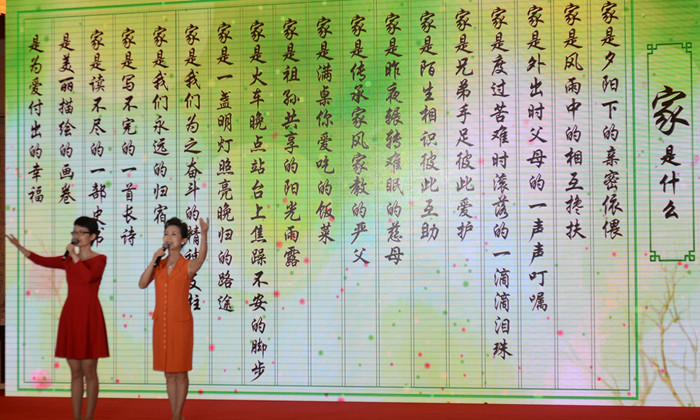 家是什么
家是夕阳下的亲密依偎
家是风雨中的相互搀扶
家是外出时父母的一声声叮嘱
家是度过苦难时滚落的一滴滴泪珠
家是兄弟手足彼此爱护
家是陌生相识彼此互助
家是昨夜辗转难眠的慈母
家是传承家风家教的严父
家是满桌你爱吃的饭菜
家是祖孙共享的阳光雨露
家是火车晚点站台上焦躁不安的脚步
家是一盏明灯照亮晚归的路途
家是我们为之奋斗的精神支柱
家是我们永远的归宿
家是写不完的一首长诗
家是读不尽的一部史
是美丽描绘的画卷
是为爱付出的幸福